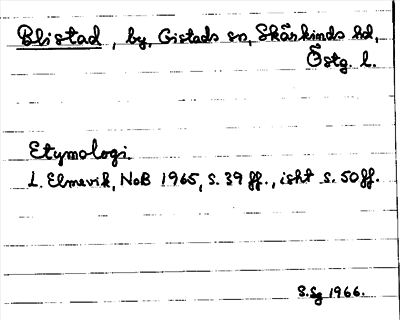 Blistad, by, Gistads sn, Skärkinds hd,
Östg. l.
Etymologi.
L. Elmevik, NoB 1965, s. 39 ff., isht s. 50 ff.
S.Sg 1966.